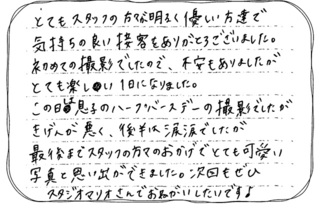 とてもスタッフの方々が明るく優しい方達で
気持ちの良い接客をありがとうございました。
初めての撮影でしたので、不安もありましたが
とても楽しい1日になりました。
この日息子のハーフバースデーの撮影でしたが
きげんが悪く、後半は涙涙でしたが
最後までスタッフの方々のおかげでとても可愛い
写真と思い出ができました。次回もぜひ
スタジオマリオさんでおねがいしたいですよ